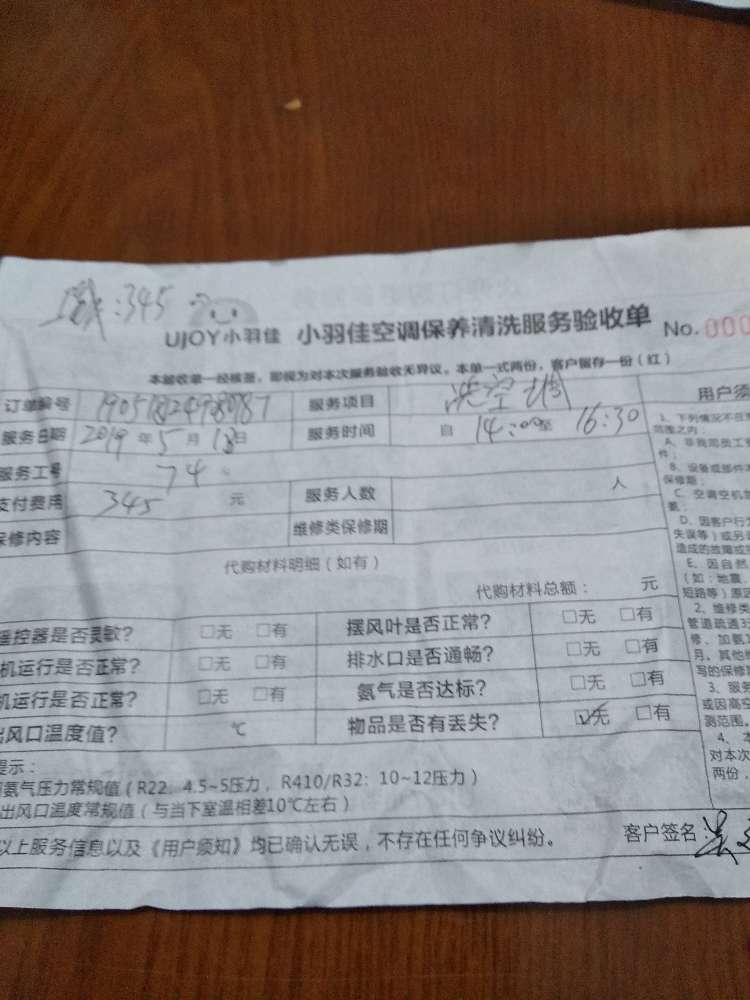 :345
UJOY小羽佳 小羽佳空调保养清洗服务验收单 No. 000
本验收单一经核签，即视为对本次服务验收无异议。本单一式两份，客户留存一份（红）
订单编号 服务项目 洗空调 用户须
服务日期 2019 年 5 月 18 日 服务时间 自 14:00 至 16:30
服务工号 74
支付费用 345 元 服务人数 人
保修内容 维修类保修期
代购材料明细（如有）
代购材料总额： 元
遥控器是否灵敏？ □无 □有 摆风叶是否正常？ □无 □有
机运行是否正常？ □无 □有 排水口是否通畅？ □无 □有
机运行是否正常？ □无 □有 氨气是否达标？ □无 □有
出风口温度值？ ℃ 物品是否有丢失？ ☑无 □有
提示：
氨气压力常规值（R22：4.5~5压力，R410/R32：10~12压力）
出风口温度常规值（与当下室温相差10℃左右）
以上服务信息以及《用户须知》均已确认无误，不存在任何争议纠纷。 客户签名
1、下列情况不在
范围之内：
A、非我司员工
件；
B、设备或部件
保修期；
C、空调空机
氨；
D、因客户行
失误等）或另
造成的故障或
E、因自然
（如：地震、
短路等）原因
2、维修类
管道疏通3
修、加氨
月，其他维
写的保修
3、服务
或因高空
测范围。
4、本
对本次
两份，